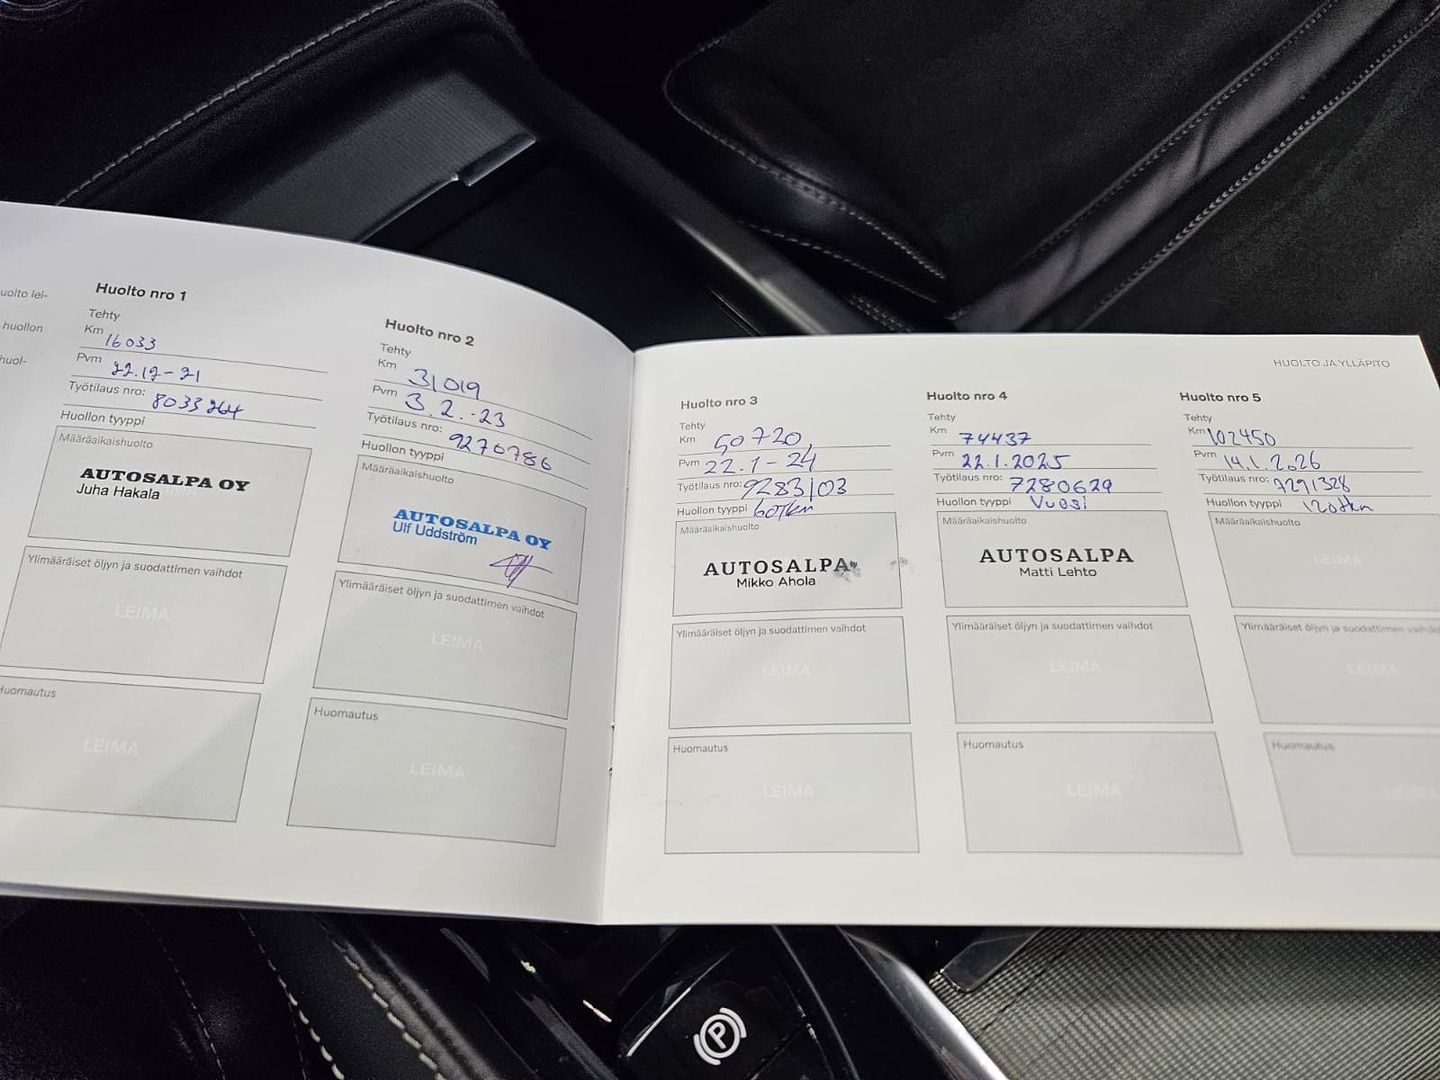 uolto lei-
huollon
huol-
Huolto nro 1
Tehty
Km 16033
Pvm 22.12-21
Työtilaus nro: 8033264
Huollon tyyppi
Määräaikaishuolto
AUTOSALPA OY
Juha Hakala
Ylimääräiset öljyn ja suodattimen vaihdot
LEIMA
Huomautus
LEIMA
Huolto nro 2
Tehty
Km 31019
Pvm 3.2.-23
Työtilaus nro: 9270786
Huollon tyyppi
Määräaikaishuolto
AUTOSALPA OY
Ulf Uddström
Ylimääräiset öljyn ja suodattimen vaihdot
LEIMA
Huomautus
LEIMA
HUOLTO JA YLLÄPITO
Huolto nro 3
Tehty
Km 50720
Pvm 22.1-24
Työtilaus nro: 9283103
Huollon tyyppi 60tkm
Määräaikaishuolto
AUTOSALPA
Mikko Ahola
Ylimääräiset öljyn ja suodattimen vaihdot
LEIMA
Huomautus
LEIMA
Huolto nro 4
Tehty
Km 74437
Pvm 22.1.2025
Työtilaus nro: 7280629
Huollon tyyppi Vuosi
Määräaikaishuolto
AUTOSALPA
Matti Lehto
Ylimääräiset öljyn ja suodattimen vaihdot
LEIMA
Huomautus
LEIMA
Huolto nro 5
Tehty
Km 102450
Pvm 14.1.2026
Työtilaus nro: 7291328
Huollon tyyppi 120tkm
Määräaikaishuolto
LEIMA
Ylimääräiset öljyn ja suodattimen vaihdot
LEIMA
Huomautus
LEIMA
P